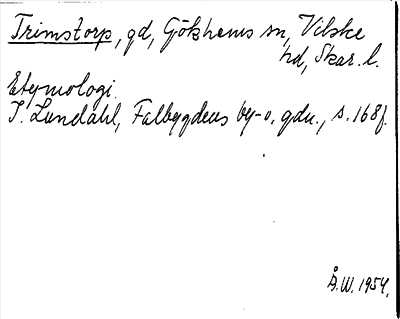 Trimstorp, gd, Gökhems sn, Vilske
hd, Skar. l.
Etymologi.
I. Lundahl, Falbygdens by-o. gdn., s. 168f.
Å.W. 1954.